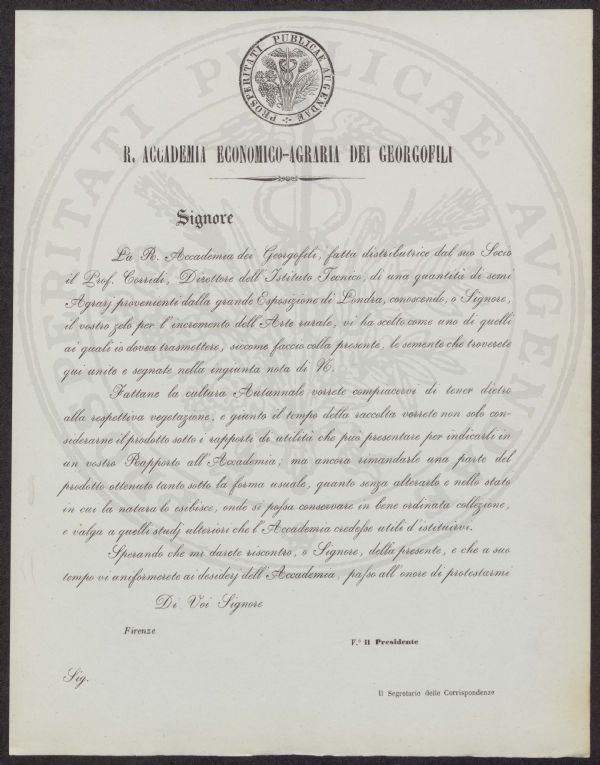 PROSPERITATI PUBLICAE AUGENDAE
R. ACCADEMIA ECONOMICO-AGRARIA DEI GEORGOFILI
Signore
La R. Accademia dei Georgofili, fatta distributrice dal suo Socio
il Prof. Corridi, Direttore dell'Istituto Tecnico, di una quantità di semi
Agrarj provenienti dalla grande Esposizione di Londra, conoscendo, o Signore,
il vostro zelo per l'incremento dell'Arte rurale, vi ha scelto come uno di quelli
ai quali io dovea trasmettere, siccome faccio colla presente, le semente che troverete
qui unite e segnate nella ingiunta nota di N.
Fattane la cultura Autunnale vorrete compiacervi di tener dietro
alla respettiva vegetazione, e giunto il tempo della raccolta vorrete non solo con-
siderarne il prodotto sotto i rapporti di utilità che può presentare per indicarli in
un vostro Rapporto all'Accademia, ma ancora rimandarle una parte del
prodotto ottenuto tanto sotto la forma usuale, quanto senza alterarlo e nello stato
in cui la natura lo esibisce, onde si possa conservare in bene ordinata collezione,
e valga a quelli studj ulteriori che l'Accademia credesse utili d'istituirvi.
Sperando che mi darete riscontro, o Signore, della presente, e che a suo
tempo vi uniformerete ai desiderj dell'Accademia, passo all'onore di protestarmi
Di Voi Signore
Firenze
F.º il Presidente
Sig.
Il Segretario delle Corrispondenze